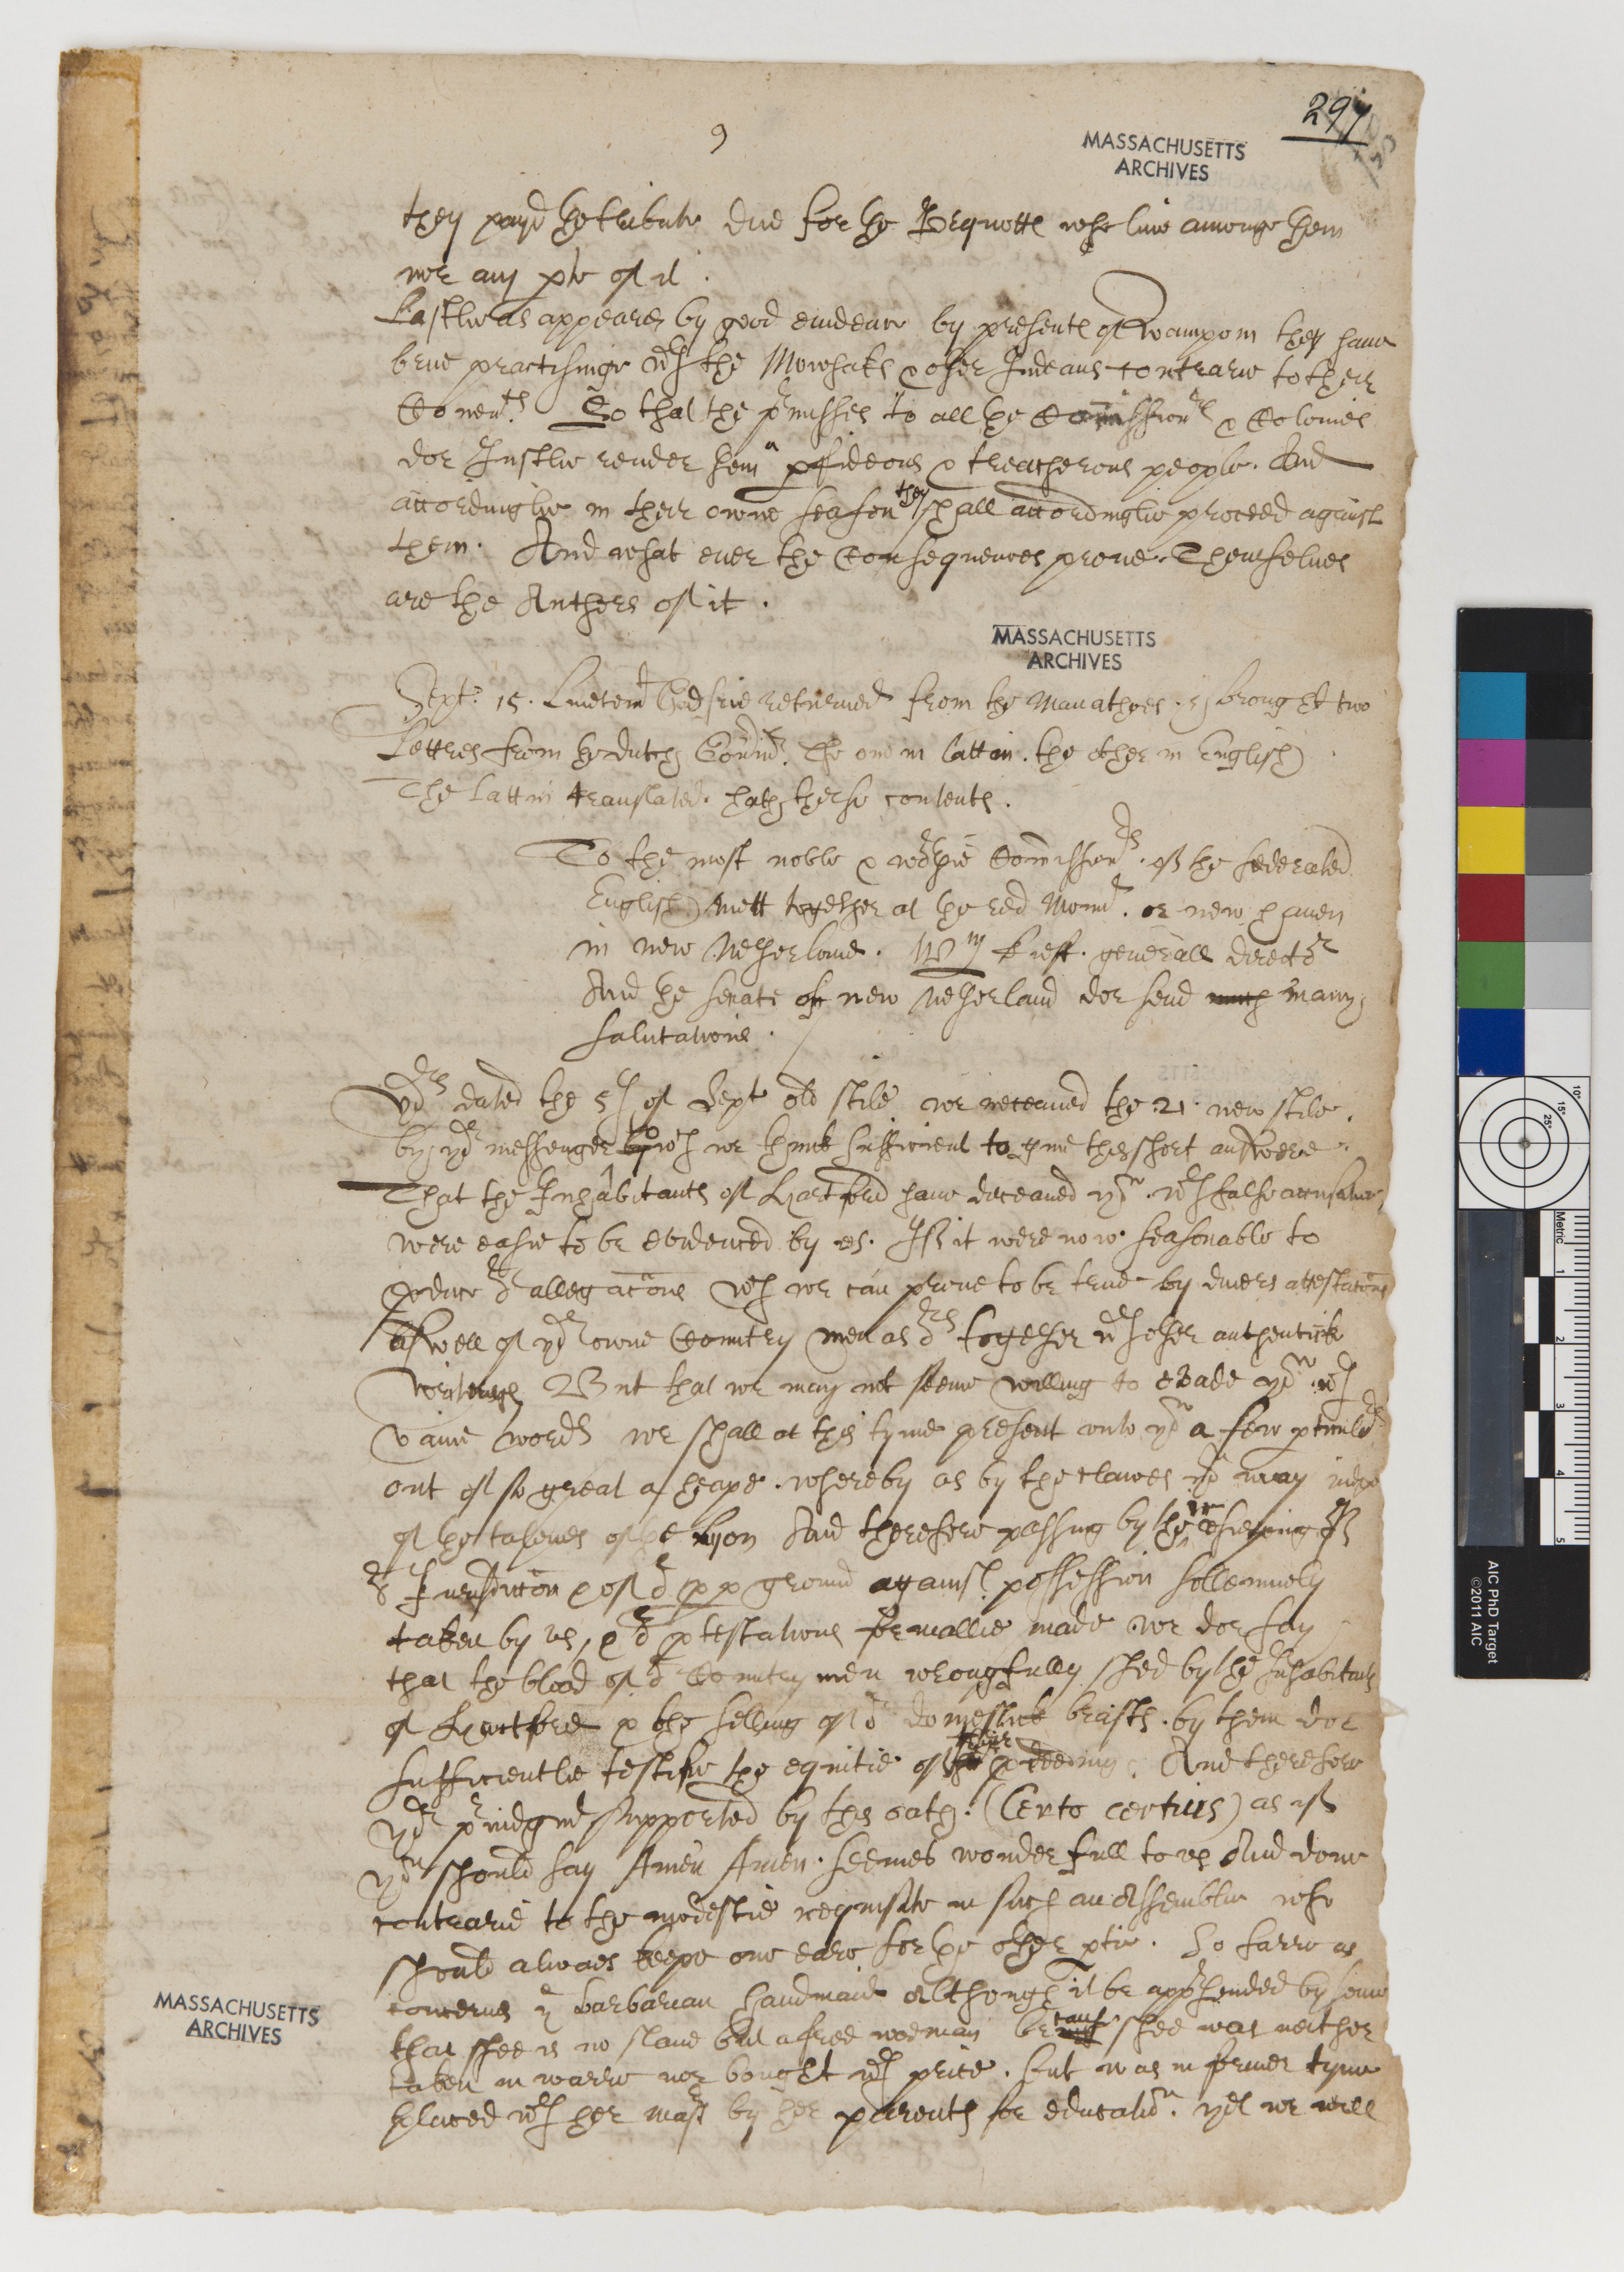 297
9
MASSACHUSETTS
ARCHIVES
they payd the tribute due for the Pequotts who live amonge them
nor any pte of it.
Lastlie as appeares by good evidence by presents of Wampom they have
bene practisinge wth the Mowhaks & other Indeans contrarie to their
Covents. So that the pmisses to all the Comissionrs & Colonies
doe Justlie render them a pfideous & treacherous people. And
accordinglie in their owne season they shall accordinglie proceed against
them. And what ever the Consequences prove. Themselves
are the Authers of it.
MASSACHUSETTS
ARCHIVES
Sept: 15. Liuetent Godfrie returned from the Manathoes & brought two
Lettres from the dutch Gouernr. The one in lattin. the other in English
The Lattin translated. hath these contents.
To the most noble & worpie Comissionrs. of the federated
English mett together at the red Mount. or new haven
in new Netherland. Wm Kieft. generall director
And the senate of new Netherland doe send much many
salutations.
Yors dated the 5th of Sept old stile we receaved the 21. new stile.
by yor messenger to wch we think sufficient to give this short answere.
That the Inhabitants of Hartford have deceaved you. wth false accusations
were easie to be evidenced by us. If it were now seasonable to
produce or allegacons wch we can prove to be true by divers attestacons
aswell of yor owne Countrymen as ors together wth other authentick
writings But that we may not seeme willing to evade you wth
vaine words we shall at this tyme present unto you a few pticulrs
out of so great a heape. whereby as by the clawes you may iudge
of the talents of the Lyon And therefore passing by their theiveing of
or Jurisdiccon & of or pp ground against possession sollemnely
taken by us, & or ptestations formallie made we doe say
that the blood of or Countrymen wrongfully shed by the Inhabitants
of Hartford & the selling of or domestick beasts. by them doe
sufficientlie testifie the equitie of their pceeding. And therefore
yor piudgmt supported by this oath. (Certo certius) as if
you should say Amen Amen. seemes wonderfull to us And done
contrarie to the modestie requisite in such an Assemblie who
should alwaes keepe one eare for the other ptie. So farre as
concerns the barbarian handmaid Although it be apphended by some
that shee is no slave but a free woeman because shee was neither
taken in warre nor bought wth price. but was in former tyme
placed wth her mastr by her parents for educatio. yet we will
MASSACHUSETTS
ARCHIVES
AIC PhD Target
©2011 AIC
Metric
1
2
3
4
5
10°
15°
25°